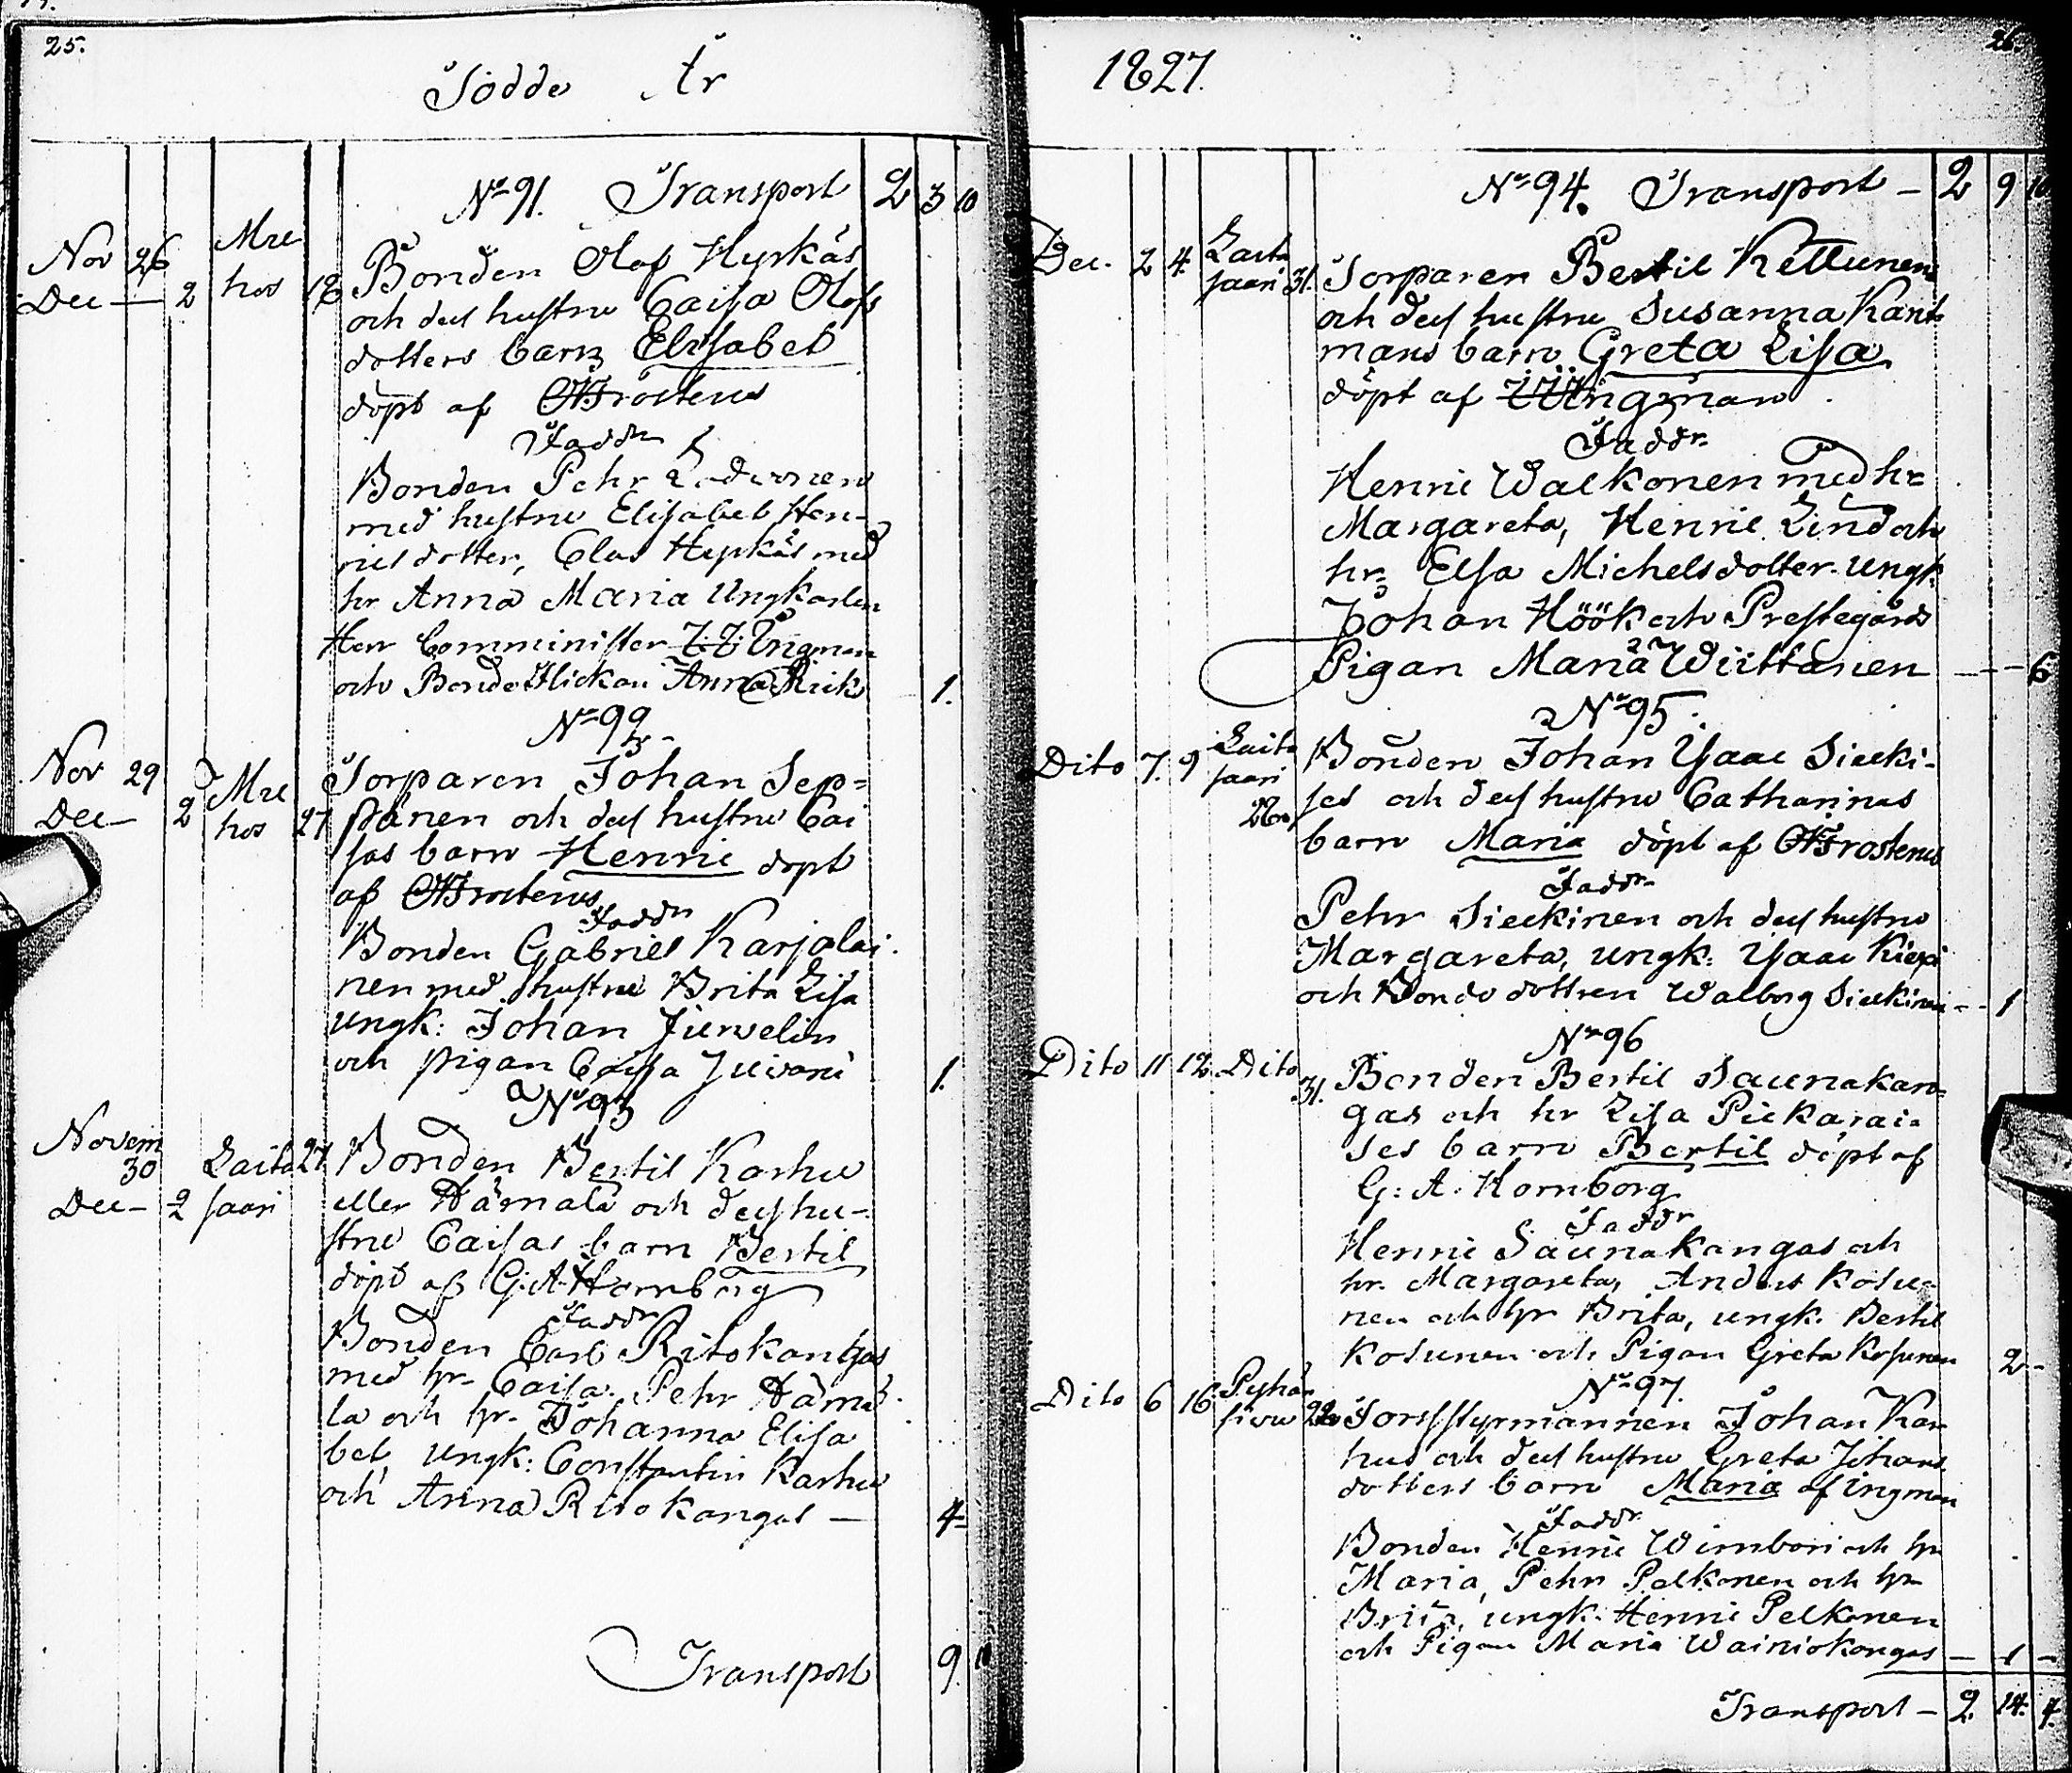 25.
Födde År
No 91. Transport 2 3 10
Nov 26 Mre
Dec — 2 hos 18 Bonden Olof Hyrkäs
och dess hustru Caisa Olofs
dotters barn Elisabet
döpt af OFrostenus
Faddr
Bonden Pehr
med hustru Elisabet Hen-
ricsdotter, Clas Hyrkäs med
hr Anna Maria Ungkarlen
Herr Comminister J. J. Ingman
och Bonde Flickan Anna 1.
No 92
Nov 29 Mre Torparen Johan Sep-
Dec — 2 hos 27 pänen och dess hustru Cai
sas barn Henric döpt
af OFrostenus
Faddr
Bonden Gabriel Karjalai-
nen med hustru Brita Lisa
ungk: Johan Juvelin
och pigan Caisa 1.
No 93
Novem
30 Laita 27 Bonden Bertil Karhu
Dec — 2 saari eller Hämälä och dess hu-
stru Caisas barn Bertil
döpt af G. A. Hornborg
Faddr
Bonden Carl Ritokangas
med hr. Caisa. Pehr Hämä-
lä och hr. Johanna Elisa
bet, ungk: Constantin Karhu
och Anna Ritokangas — 4
Transport 9. 10
26.
1827.
No 94. Transport — 2 9 10
Dec. 2 4. Laita
saari 31. Torparen Bertil Kettunen
och dess hustru Susanna Kant
mans barn Greta Lisa
döpt af J J Ingman
Faddr
Henric Walkonen med hr
Margareta, Henric Lind och
hr Elsa Michelsdotter. Ungk.
Johan Höök och Prestegårds
Pigan Maria Wiittanen — — 6
No 95.
Dito 7. 9 Laita
saari
26. Bonden Johan Ysaac Sieeki-
ses och dess hustru Catharinas
barn Maria döpt af OFrostenus
Faddr
Pehr Sieekinen och dess hustru
Margareta, ungk: Ysaac
och Bondedottren Walborg Sieekinen — 1
No 96
Dito 11 12. Dito 31. Bonden Bertil Saunakan-
gas och hr Lisa Pickarai-
ses barn Bertil döpt af
G: A. Hornborg
Faddr
Henric Saunakangas och
hr. Margareta, Anders Kosu-
nen och hr Brita, ungk. Bertil
Kosunen och Pigan Greta Kosunen 2 -
No 97.
Dito 6 16. Pyhän
sivu 22 Forsstyrmannen Johan Kar
hus och dess hustru Greta Johans
dotters barn Maria af Ingman
Faddr
Bonden Henric Wimbori och hr
Maria, Pehr Pelkonen och hr
Brita, ungk. Henric Pelkonen
och Pigan Maria Wainiokangas — 1 —
Transport — 2. 14. 4.